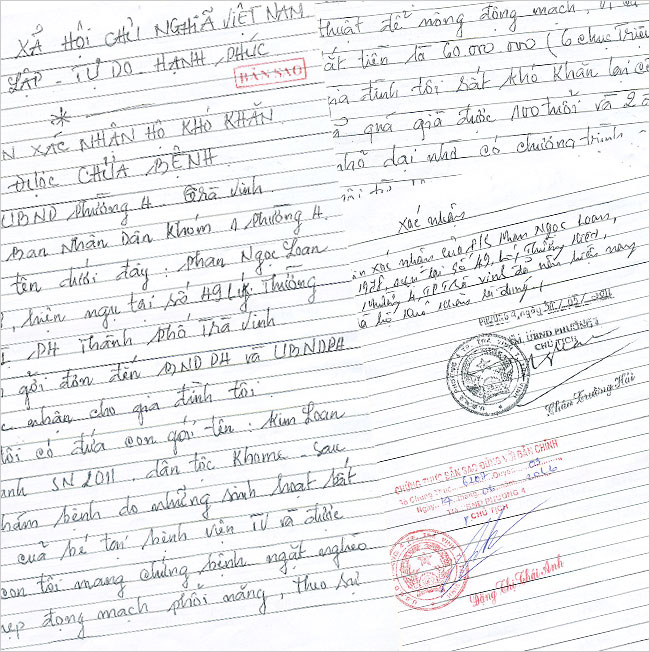 XÃ HỘI CHỦ NGHĨA VIỆT NAM
LẬP - TỰ DO - HẠNH PHÚC
BẢN SAO
N XÁC NHẬN HỘ KHÓ KHĂN
ĐƯỢC CHỮA BỆNH
UBND phường 4 Trà Vinh
Ban Nhân Dân Khóm 1 phường 4
tên dưới đây: Phan Ngọc Loan
hiện ngụ tại số 49 Lý Thường
P4 Thành phố Trà Vinh
gởi đơn đến BND P4 và UBNDP4
c nhận cho gia đình tôi
tôi có đứa con gái tên: Kim Loan
anh SN 2011, dân tộc Khome. Sau
hám bệnh do những sinh hoạt bất
của bé tại bệnh viện TV và được
con tôi mang chứng bệnh ngặt nghèo
hẹp động mạch phổi nặng, theo sự
thuật để nông động mạch,
ắt tiền là 60.000.000 (6 chục triệu
na đình tôi rất khó khăn lại có
quá già được 100 tuổi và 2
nhỏ dại nhờ có chương trình
Xác nhận
xác nhận của Phan Ngọc Loan,
tại số 49, Lý Thường Kiệt,
phường 4, TP Trà Vinh hiện nay
là hộ khó khăn
PHƯỜNG 4, ngày
TM. UBND PHƯỜNG 4
CHỦ TỊCH
Trường Hải
CHỨNG THỰC BẢN SAO ĐÚNG VỚI BẢN CHÍNH
Số Chứng Thực
Ngày
TM. UBND PHƯỜNG 4
CHỦ TỊCH
Thị Thái Anh